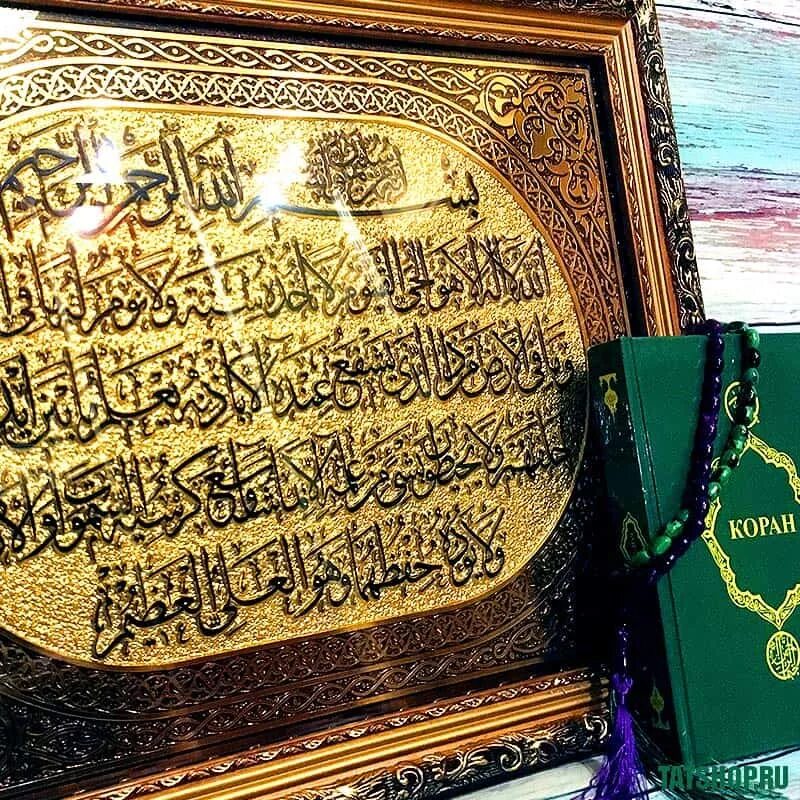 بسم الله الرحمن الرحيم
الله لا اله الا هو الحي القيوم لا تأخذه سنة ولا نوم له ما في
وما في الارض من ذا الذي يشفع عنده الا باذنه يعلم ما بين
خلفهم ولا يحيطون بشيء من علمه الا بما شاء وسع كرسيه السموات والار
ولا يؤده حفظهما وهو العلي العظيم
КОРАН
TATSHOP.RU